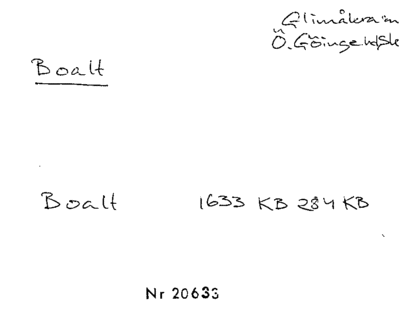 Glimåkra sn
Ö. Göinge hd Sk
Boalt
Boalt 1633 KB 284 KB
Nr 20633